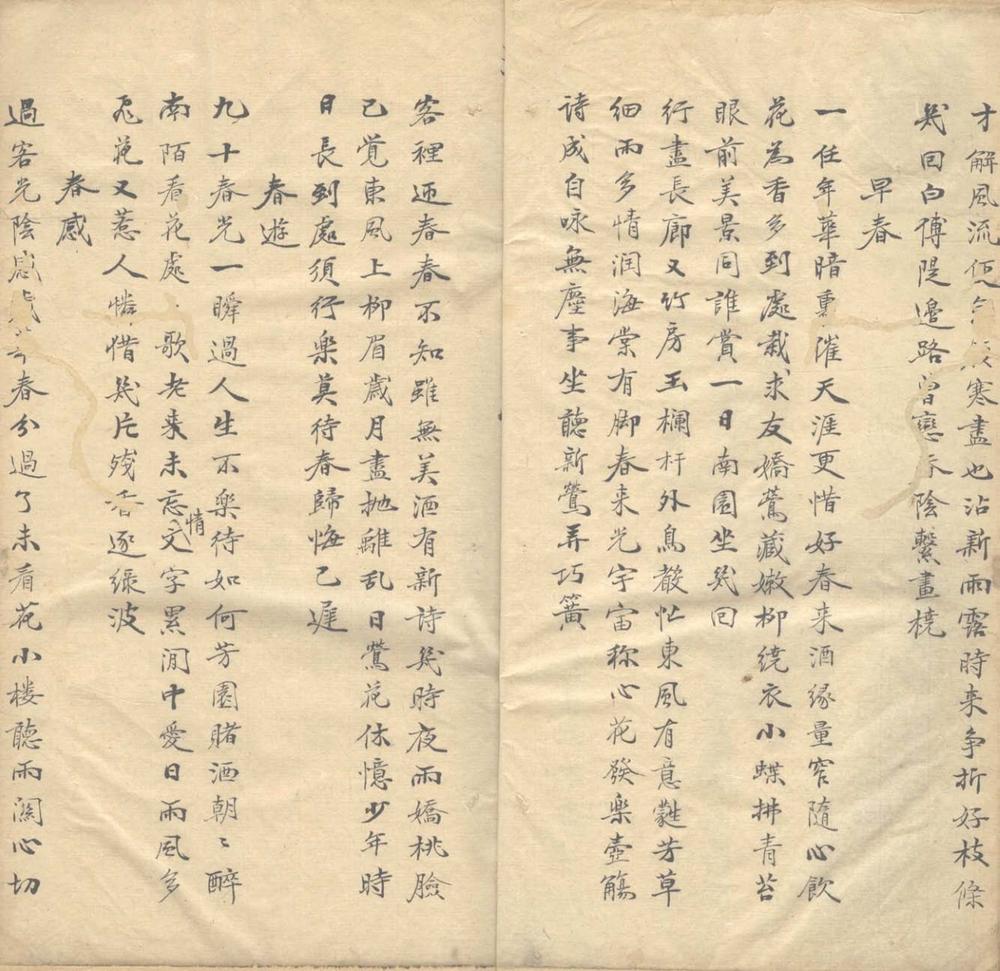 才解風流便寒盡也沾新雨露時來争折好枝條
幾回白傅隄邊路曾陰繫畫橈
早春
一任年華暗裏催天涯更惜好春来酒緣量窄隨心飲
花為香多到處栽求友嬌鶯藏嫩柳繞衣小蝶拂青苔
眼前美景同誰賞一日南園坐幾回
行盡長廊又竹房玉欄杆外鳥聲忙東風有意甦芳草
细雨多情润海棠有脚春来光宇宙称心花發樂壺觴
诗成自咏無塵事坐聽新鶯弄巧簧
客裡迎春春不知雖無美酒有新诗幾時夜雨嬌桃臉
已覺東風上柳眉歲月盡抛離乱日鶯花休憶少年時
日長到處須行樂莫待春歸悔已遲
春遊
九十春光一瞬過人生不樂待如何芳園賭酒朝〻醉
南陌看花處〻歌老来未忘文情字累閒中愛日雨風多
飛花又惹人憐惜幾片殘香逐綠波
春感
過客光陰感春分過了未看花小楼聽雨關心切